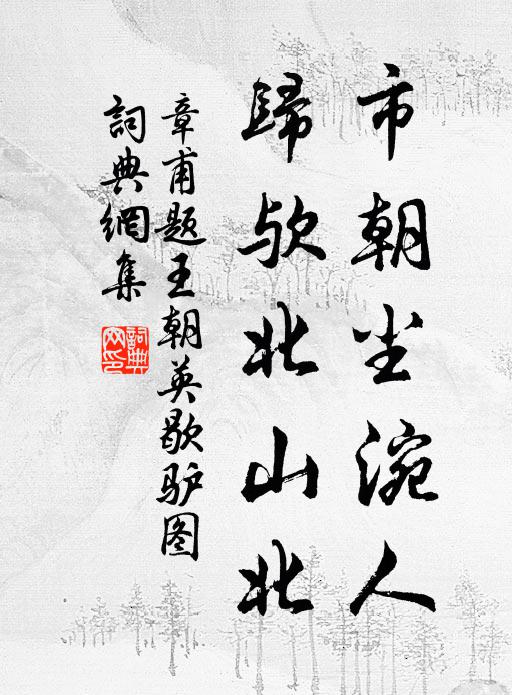 市朝尘涴人
歸欤北山北
章甫题王朝英歇驴图
詞典網集
詞典网印